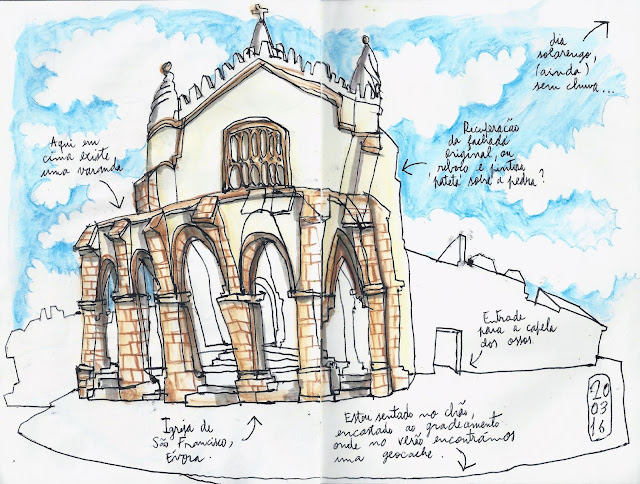 dia
solarengo,
(ainda)
sem chuva...
Aqui em
cima existe
uma varanda
Recuperação
da fachada
original, ou
reboco e pintura
"pateta" sobre a pedra?
Entrada
para a capela
dos ossos.
Igreja de
São Francisco,
Évora.
Estou sentado no chão,
encostado ao gradeamento
onde no verão encontrámos
uma geocache.
20
03
16